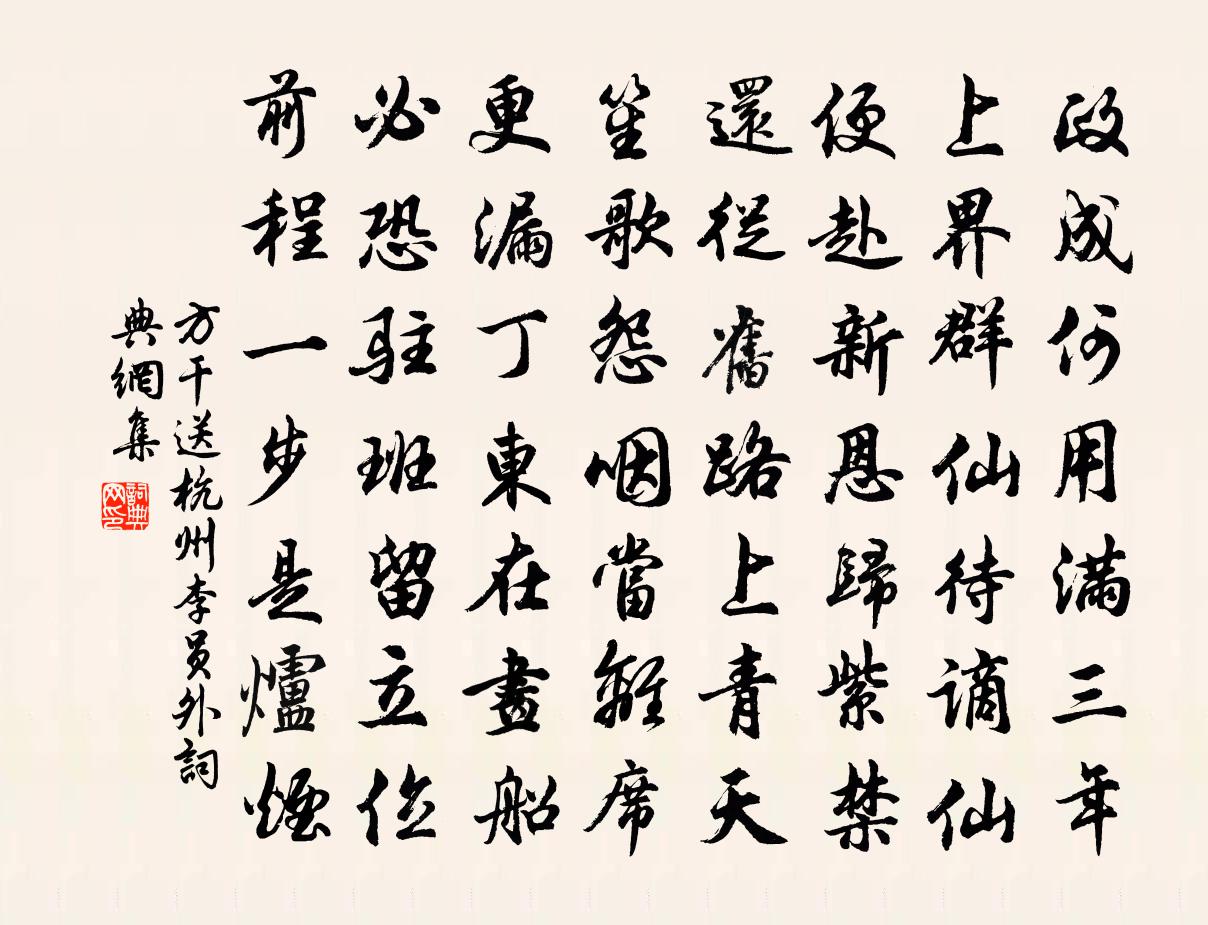 政成何用滿三年
上界群仙待謫仙
便赴新恩歸紫禁
還從舊路上青天
笙歌怨咽當離席
更漏丁東在畫船
必恐駐班留立位
前程一步是爐煙
方干送杭州李員外詞
典網集
詞典
网印